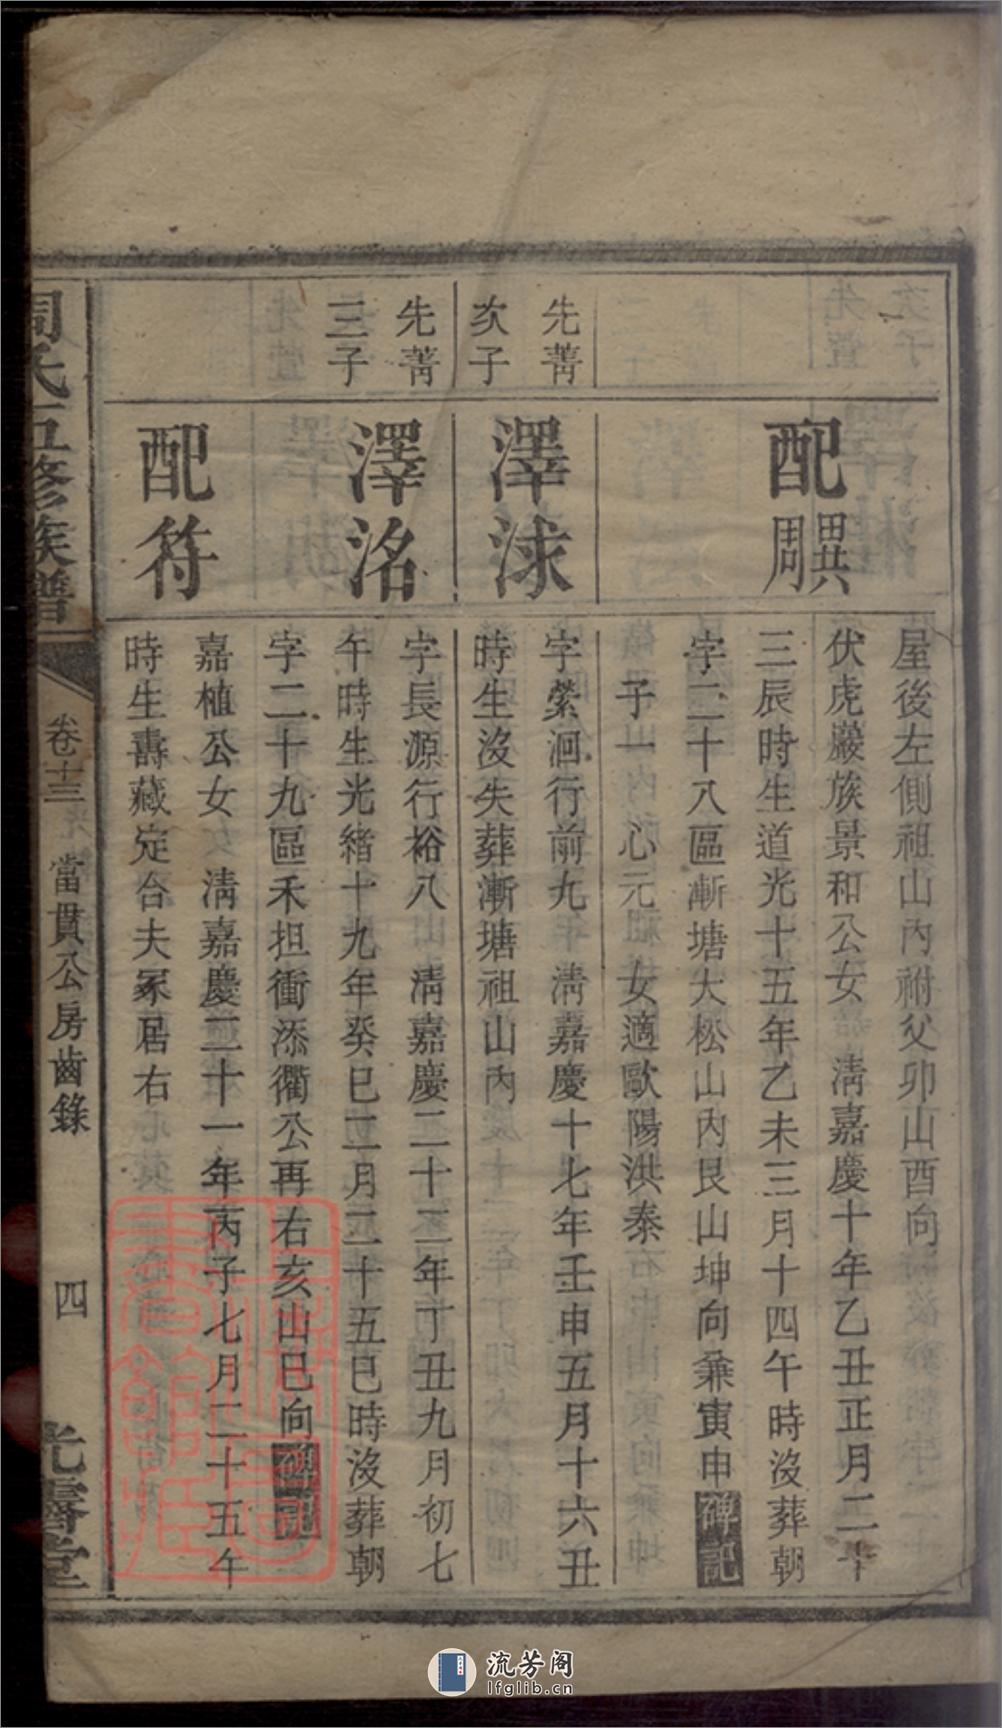 屋後左側祖山內祔父卯山酉向
配
周
異
伏虎巖族景和公女 淸嘉慶十年乙丑正月二十
三辰時生道光十五年乙未三月十四午時沒葬朝
字二十八區漸塘大松山內艮山坤向兼寅申碑記
子一 心元 女適歐陽洪泰
先菁
次子
澤浗
字縈洄行前九 淸嘉慶十七年壬申五月十六丑
時生沒失葬漸塘祖山內
先菁
三子
澤洺
字長源行裕八 淸嘉慶二十二年丁丑九月初七
午時生光緒十九年癸巳二月二十五巳時沒葬朝
字二十九區禾担衝添衢公再右亥山巳向碑記
配符
嘉植公女 淸嘉慶二十一年丙子七月二十五年
時生壽藏定合夫冢居右
周氏五修族譜
卷十三
當貫公房齒錄
四
光霽堂
流芳阁
lfglib.cn